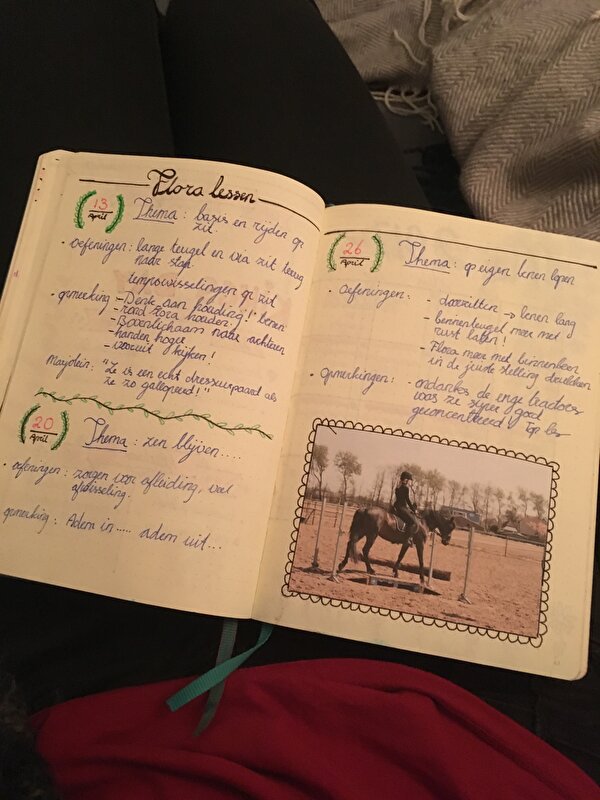 Flora lessen
13
April
Thema: basis en rijden op
zit.
• oefeningen: lange teugel en via zit terug
naar stap
tempowisselingen op zit
• opmerking - Denk aan houding! benen
- rond Flora houden!
- Bovenlichaam naar achteren
- handen hoger
- vooruit kijken!
Marjolein: "Ze is een echt dressuurpaard als
ze zo gallopeerd!"
20
April
Thema: zen blijven....
• oefeningen: zorgen voor afleiding, veel
afwisseling.
opmerking: Adem in..... adem uit...
26
April
Thema: op eigen benen lopen
• oefeningen: - doorzitten → benen lang
- binnenteugel meer met
rust laten!
- Flora meer met binnenbeen
in de juiste stelling
• Opmerkingen: - ondanks de enge
was ze super goed
geconcentreerd! Top les